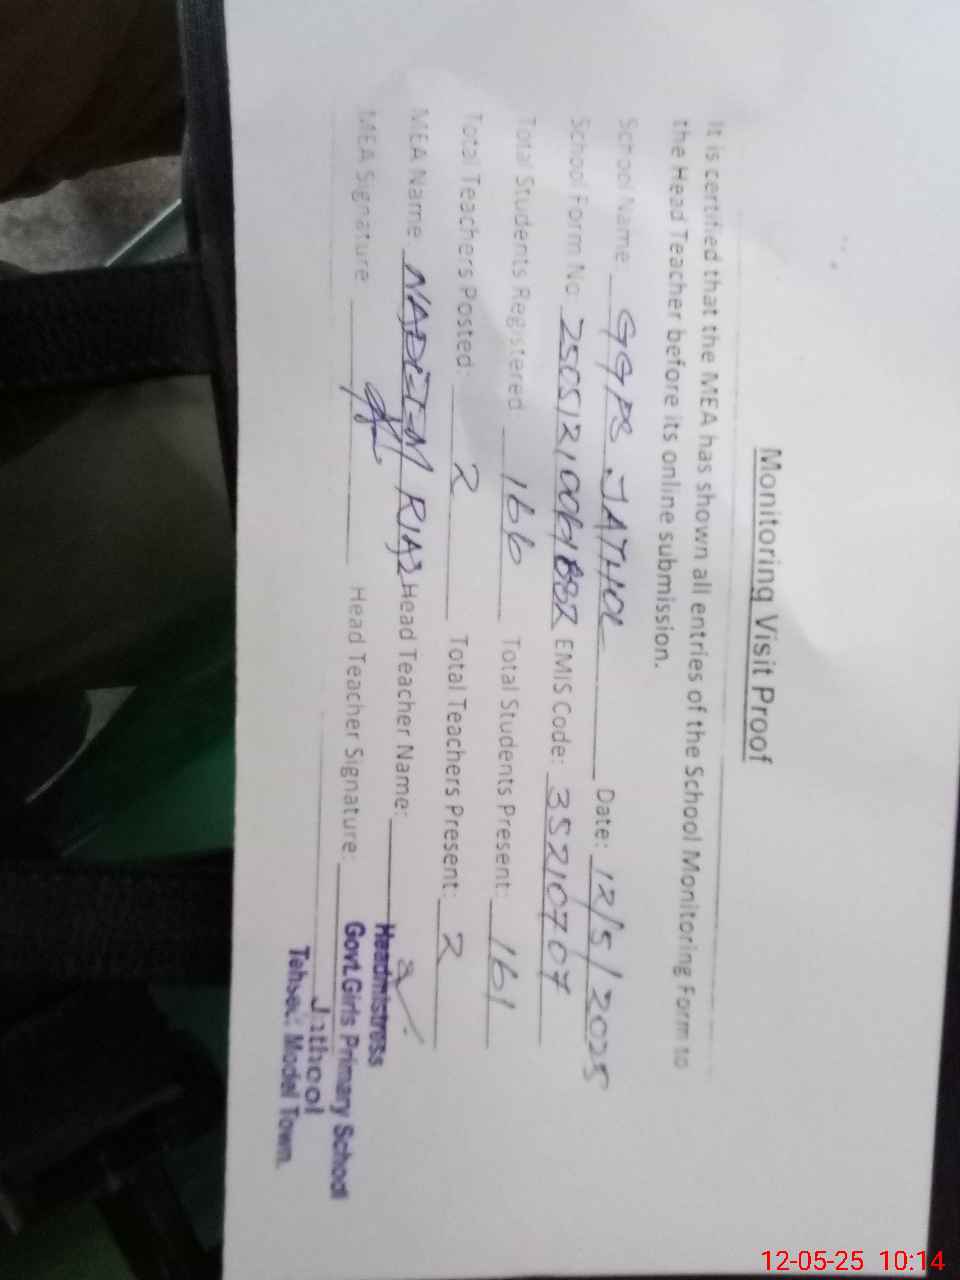 Monitoring Visit Proof
It is certified that the MEA has shown all entries of the School Monitoring Form to
the Head Teacher before its online submission.
School Name: GGPS JATHOL Date: 12/5/2025
School Form No: EMIS Code: 35210707
Total Students Registered 166 Total Students Present: 161
Total Teachers Posted: 2 Total Teachers Present: 2
MEA Name NADEEM RIAZ Head Teacher Name:
MEA Signature Head Teacher Signature:
Headmistress
Govt. Girls Primary School
Jathool
Tehsec: Model Town.
12-05-25 10:14